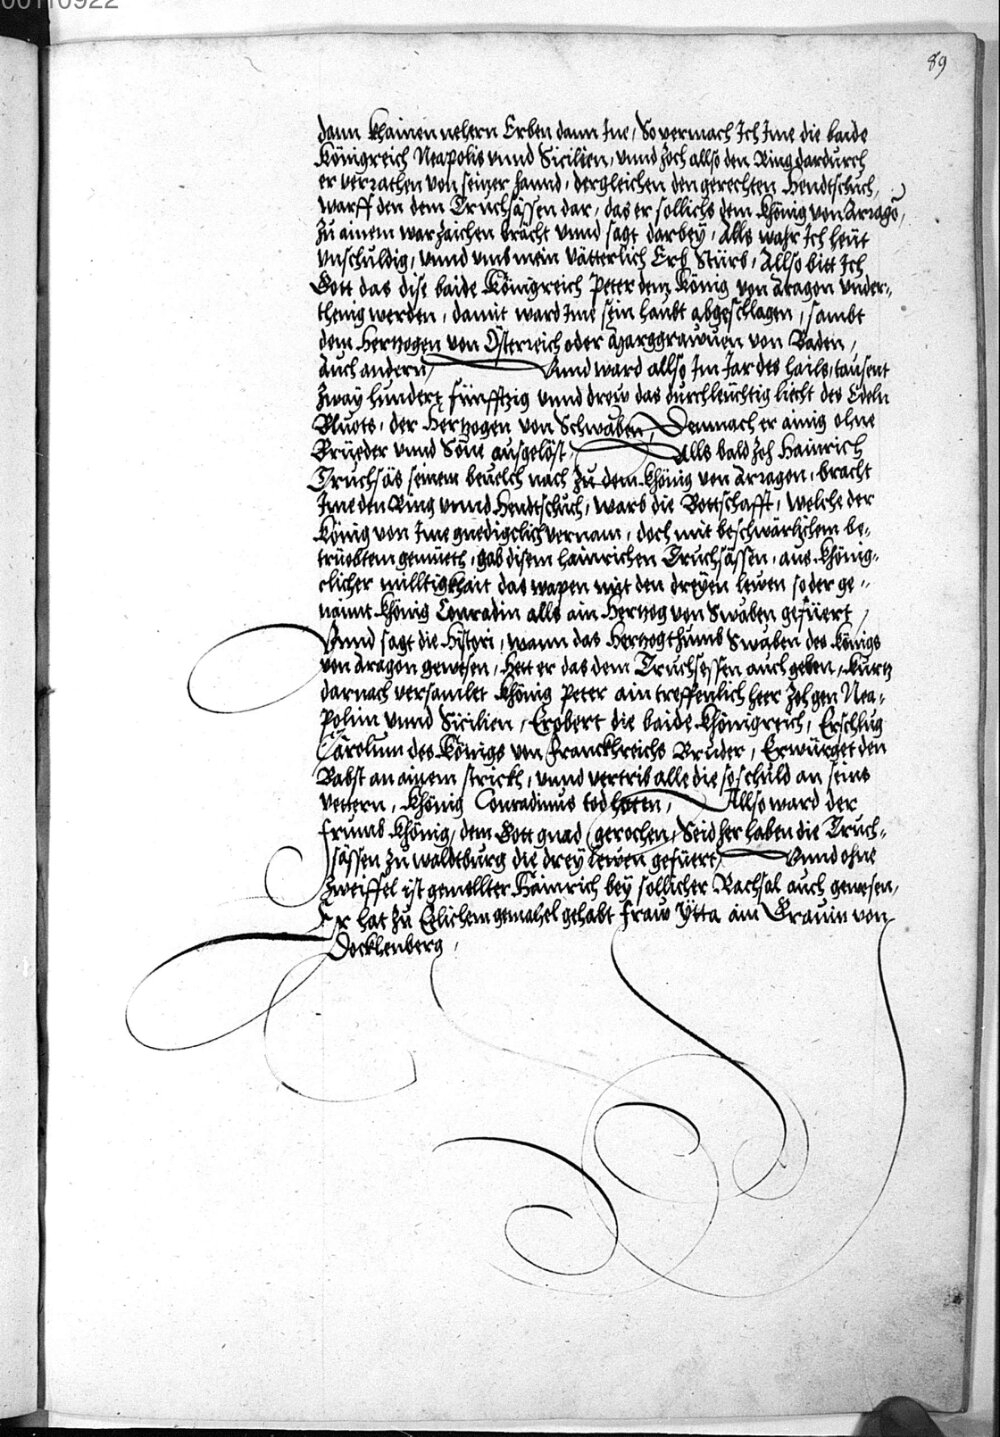 00110922
89
dann khainen nehern Erben dann Ine, So vermach Ich Ime die baide
Königreich Neapolis vnnd Sicilien, vnnd zoch allso den Ring dardurch
er verrathen von seiner hannd, dergleichen den gerechten Hendtschuch,
warff den dem Truchsässen dar, das er sollichs dem König von Arragō,
zu ainem warzaichen brächt vnnd sagt darbey, Alls wahr Ich heüt
vnschuldig, vnnd vmb mein vätterlich Erb Stürb, Allso bitt Ich
Gott das dise baide Königreich Peter dem König von Aragon vnder-
thenig werden, damit ward Ime sein haubt abgeschlagen, sambt
dem Hertzogen von Österreich oder Marggrauen von Baden,
Auch andern, Vnnd ward allso Im Jar des hails, tausent
zway hundert fünfftzig vnnd drew das durchleüchtig liecht des Edeln
Bluots, der Hertzogen von Schwaben, Demnach er ainig ohne
Brüeder vnnd Söne ausgelöst, Alls bald zoh Hainrich
Truchsäs seinem beuelch nach zu dem König von Arragon, bracht
Ime den Ring vnnd Hendtschuch, warb die Bottschafft, welche der
König von Ime gnedigclich vernam, doch mit beschwärlichem be-
trüebtem gemüeth, gab disem Hainrichen Truchsässen, aus König-
clicher milltigkhait das wapen mit den dreyen lewen so der ge-
nannt König Conradin alls ain Hertzog von Swaben gefüert,
Vnnd sagt die Histori, wann das Hertzogthumb Swaben des Königs
von Aragon gewesen, Hett er das dem Truchsessen auch geben, Kurtz
darnach versamlet König Peter ain treffenlich heer zoh gen Nea-
polim vnnd Sicilien, Erobert die baide Königreich, Erschlug
Carolum des Königs von Franckhreichs Bruder, Erwürget den
Babst an ainem strickh, vnnd vertrib alle die so schuld an seins
vettern, König Conradinus tod heten, Allso ward der
frumb König, dem Gott gnad gerochen, Seid her haben die Truch-
sässen zu Waldtburg die drey Lewen gefüert, Vnnd ohne
zweiffel ist gemellter Hainrich bey sollicher Rachsal auch gewesen,
Er hat zu Eelichem gemahel gehabt fraw Ytta ain Grauin von
Docklenberg,